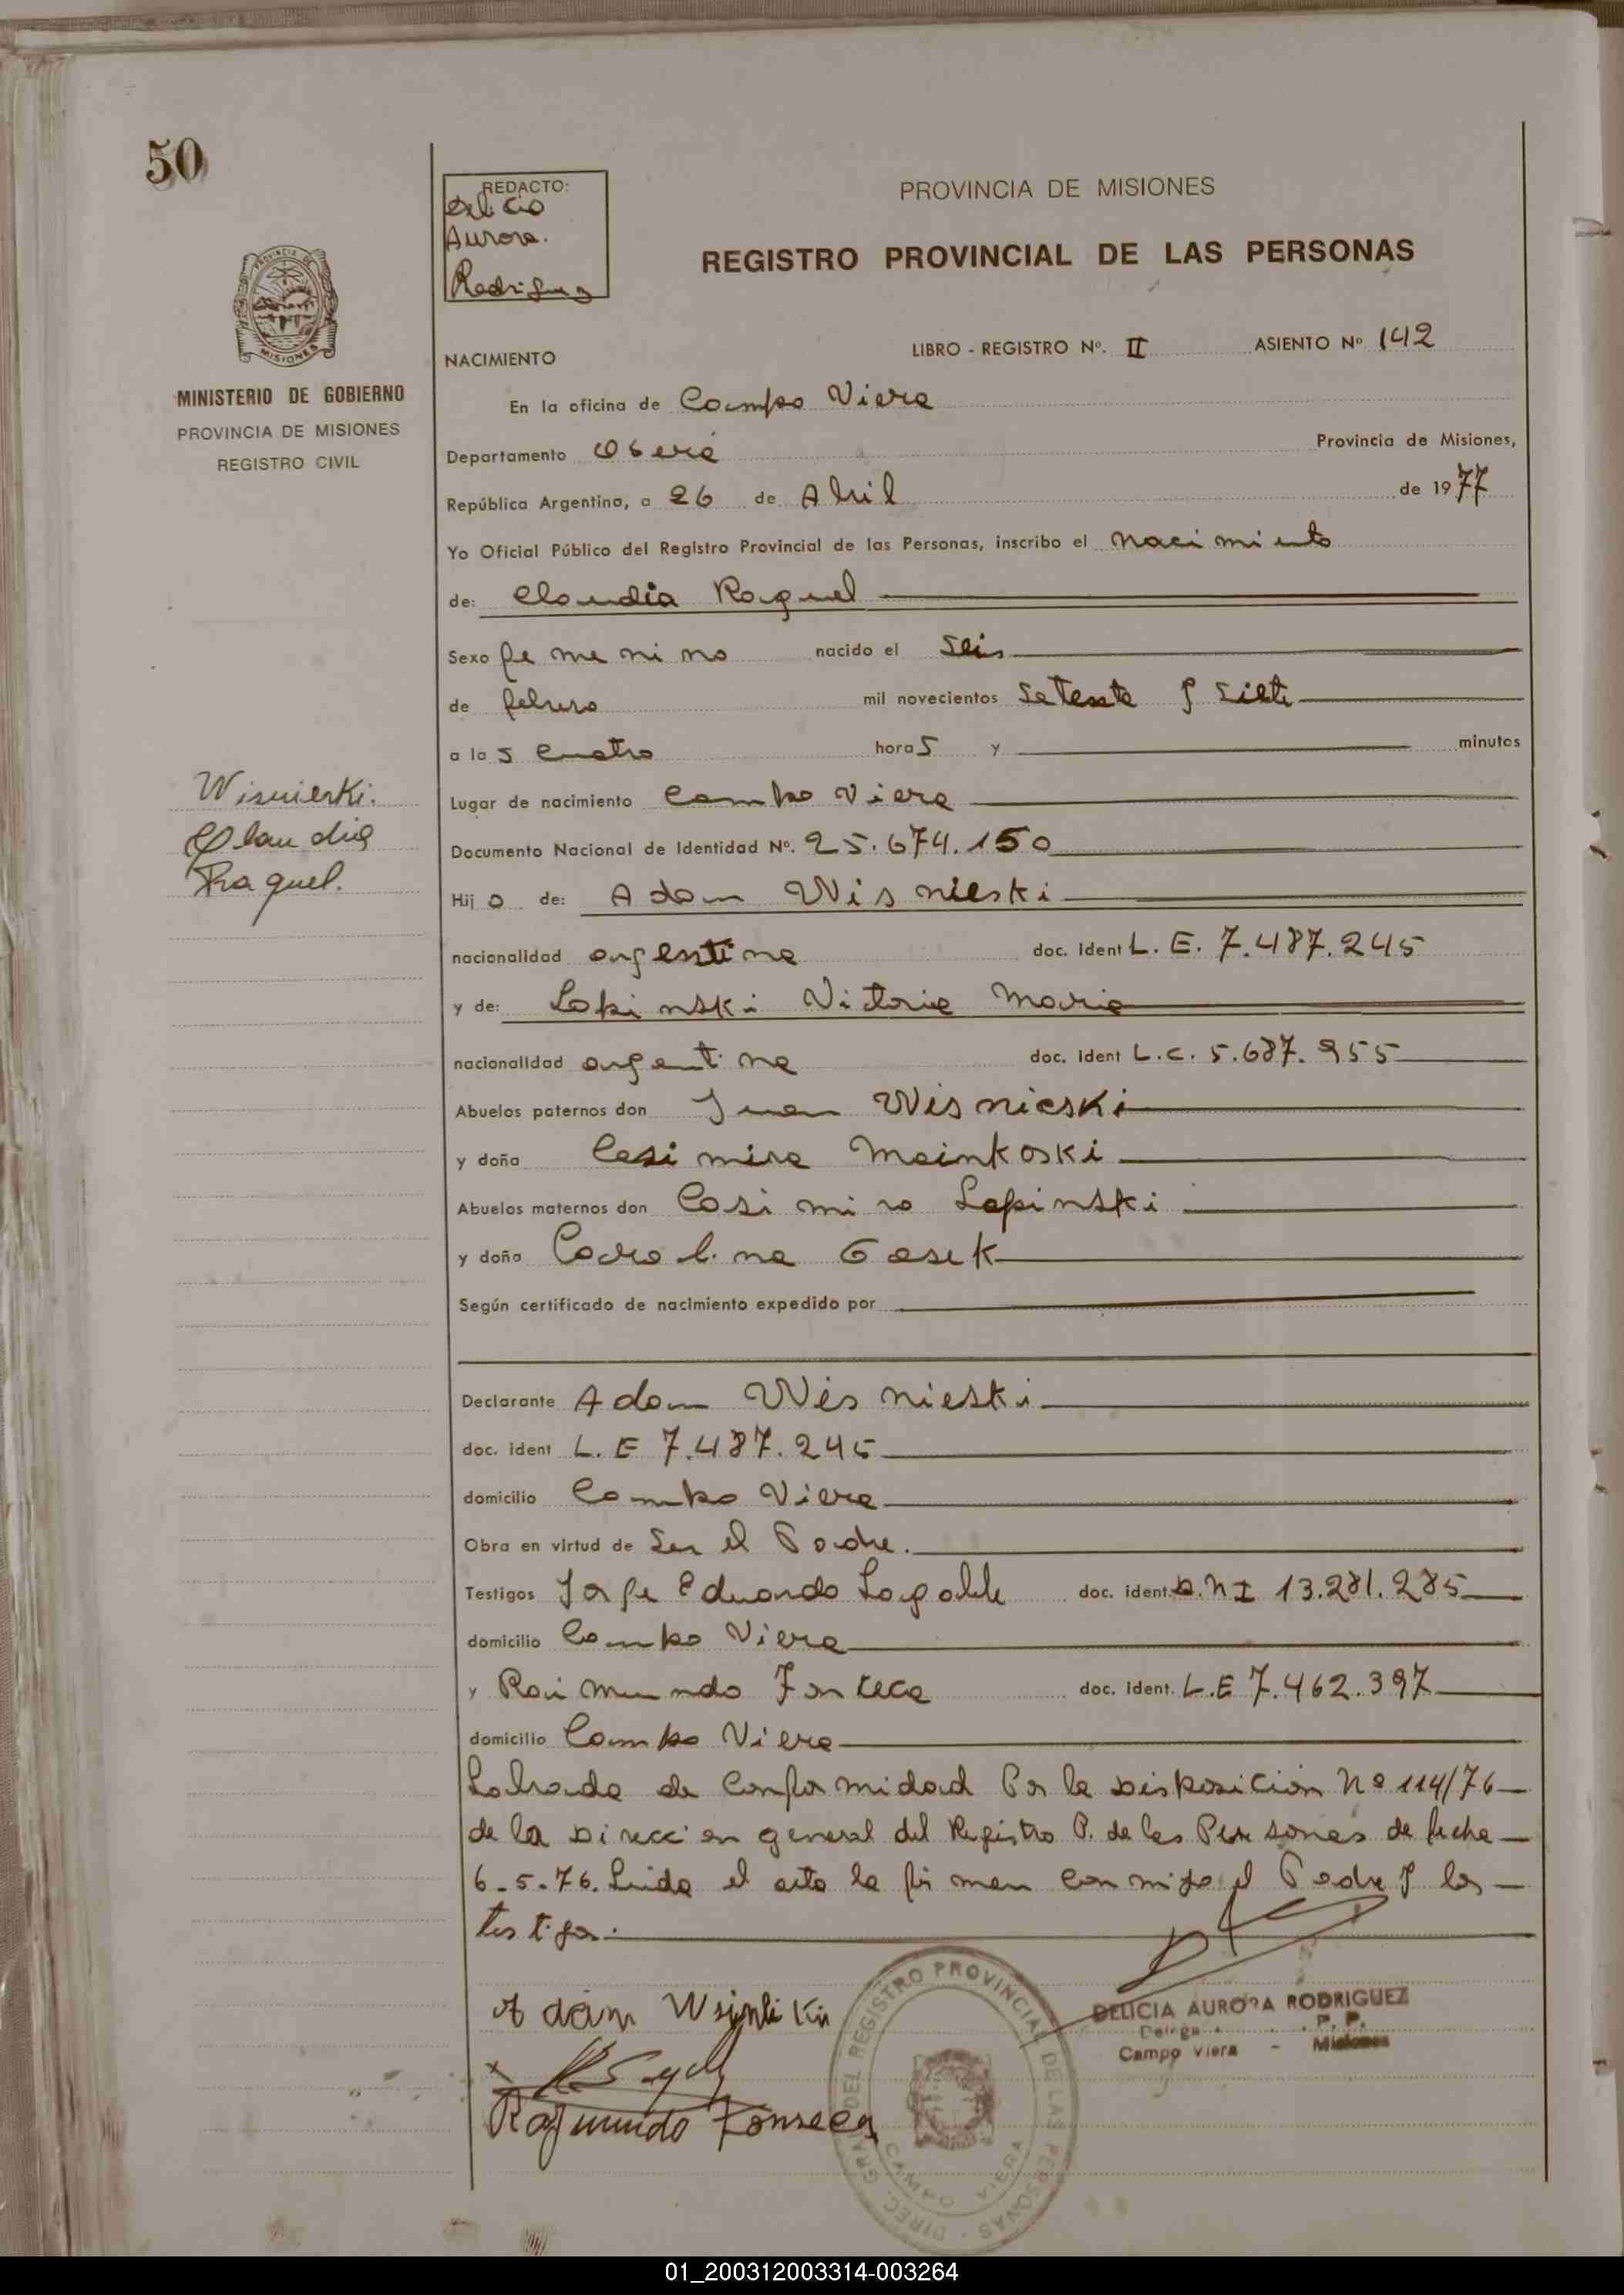 50
REDACTO:
Delicia
Aurora.
Rodriguez
PROVINCIA DE MISIONES
REGISTRO PROVINCIAL DE LAS PERSONAS
PROVINCIA DE
MISIONES
MINISTERIO DE GOBIERNO
PROVINCIA DE MISIONES
REGISTRO CIVIL
NACIMIENTO
LIBRO - REGISTRO Nº. II ASIENTO Nº 142
En la oficina de Campo Viera
Departamento Oberá Provincia de Misiones,
República Argentina, a 26 de Abril de 1977
Yo Oficial Público del Registro Provincial de las Personas, inscribo el nacimiento
de: Claudia Raquel
Sexo femenino nacido el Seis
de febrero mil novecientos setenta y siete
a las cuatro horas y minutos
Wisnieski.
Claudia
Raquel.
Lugar de nacimiento Campo Viera
Documento Nacional de Identidad Nº. 25.674.150
Hijo de: Adan Wisnieski
nacionalidad argentina doc. ident L. E. 7.487.245
y de: Lapinski Victoria Maria
nacionalidad argentina doc. ident L.C. 5.687.955
Abuelos paternos don Juan Wisnieski
y doña Casimira Meinkoski
Abuelos maternos don Casimiro Lapinski
y doña Carolina Gasek
Según certificado de nacimiento expedido por
Declarante Adan Wisnieski
doc. ident L. E 7.487.245
domicilio Campo Viera
Obra en virtud de Ser el Padre.
Testigos Jorge Eduardo doc. ident. D.N I 13.281.285
domicilio Campo Viera
y Raimundo Fonceca doc. ident. L.E 7.462.397
domicilio Campo Viera
Labrada de conformidad Por la Disposición Nº 114/76
de la Direccion general del Registro P. de las Personas de fecha
6-5-76. Leida el acta la firman conmigo el Padre y los
testigos.
Raymundo Fonseca
DELICIA AURORA RODRIGUEZ
Campo Viera - Misiones
DIREC. GRAL. DEL REGISTRO PROVINCIAL DE LAS PERSONAS
CAMPO VIERA
01_200312003314-003264